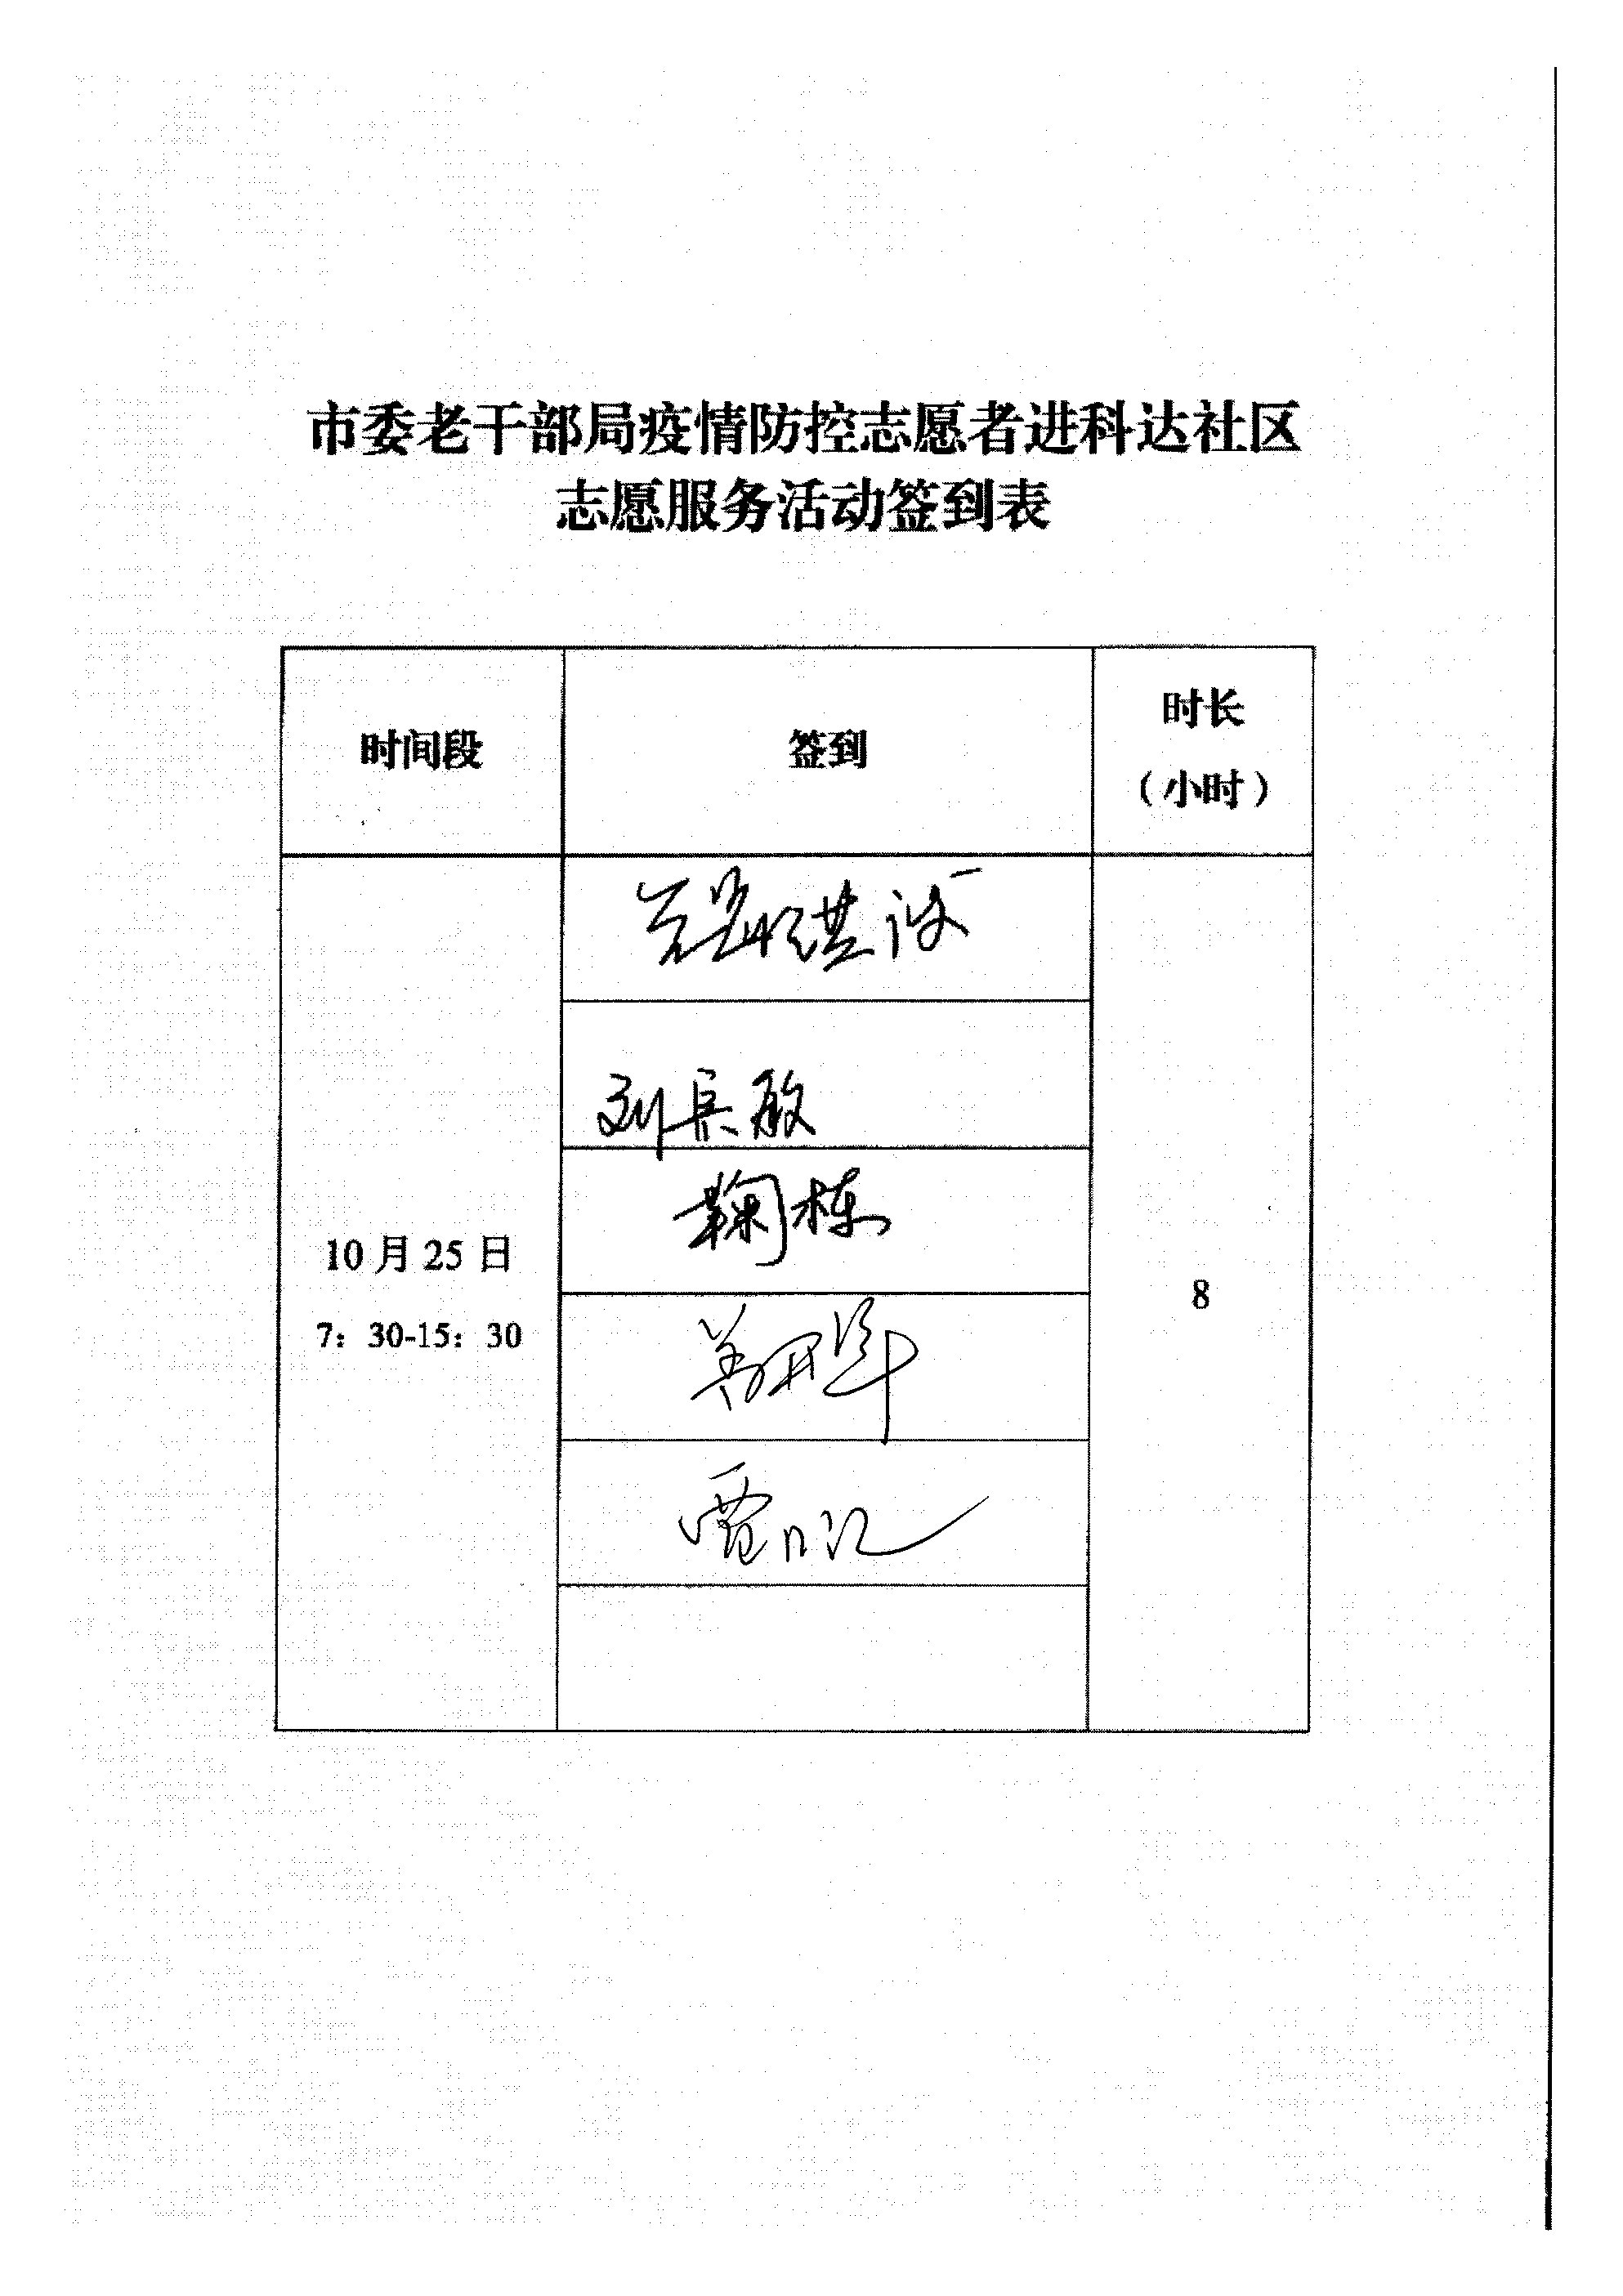 市委老干部局疫情防控志愿者进科达社区
志愿服务活动签到表
时间段
签到
时长
（小时）
10月25日
7：30-15：30
刘兵敏
鞠栋
8